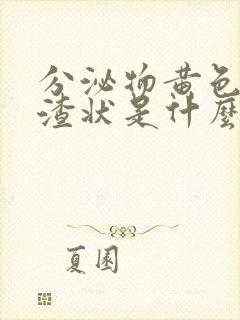 分泌物黄色
渣状是什麼
夏園